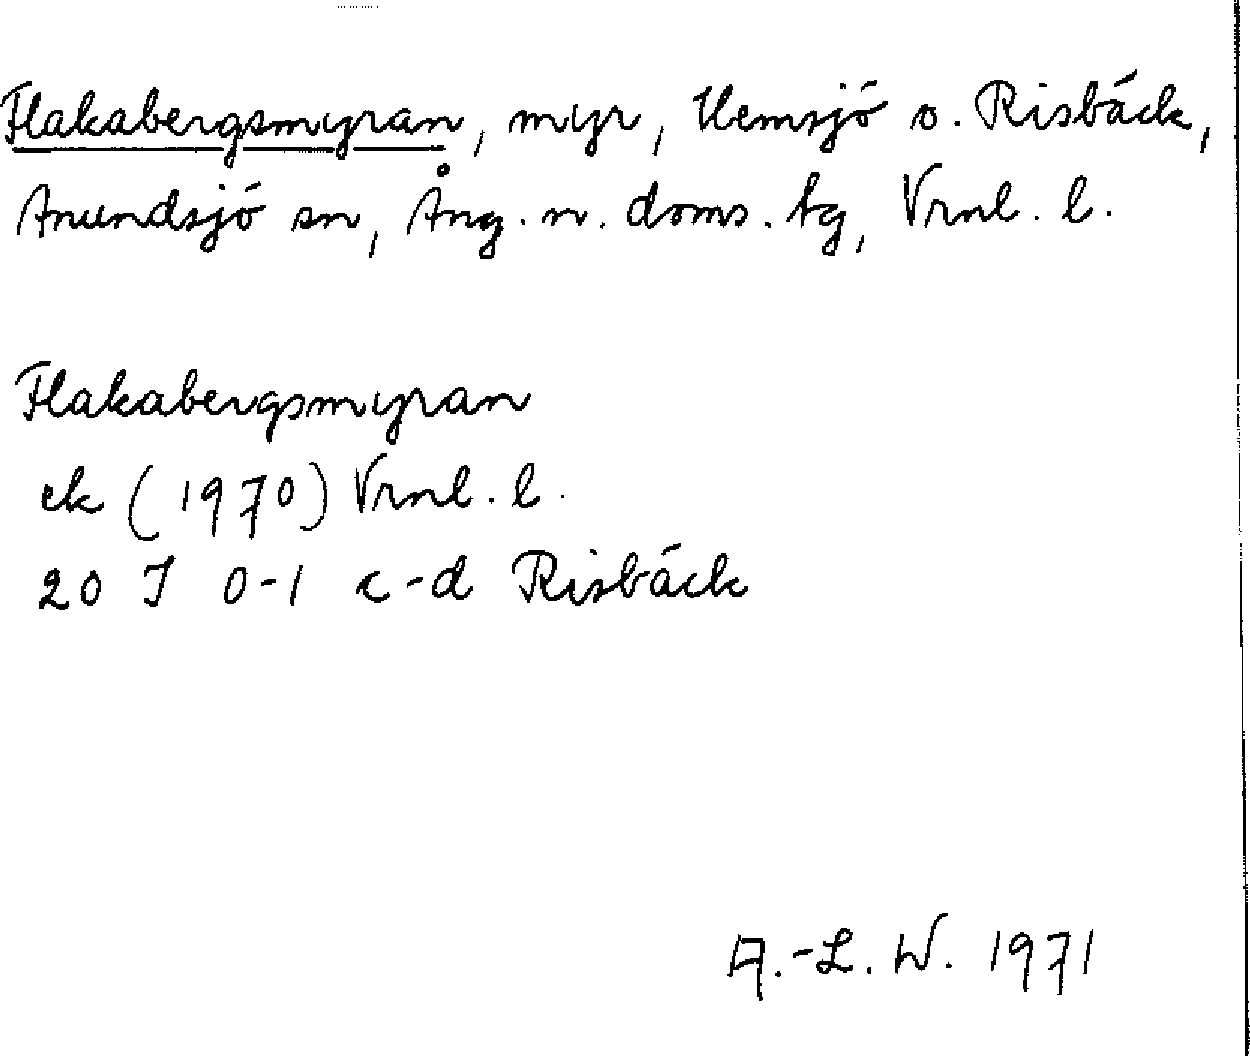 Flakabergsmyran, myr, Hemsjö o. Risbäck,
Anundsjö sn, Ång. n. doms. tg, Vrnl. l.
Flakabergsmyran
ek (1970) Vrnl. l.
20 J 0-1 c-d Risbäck
A.-L. W. 1971